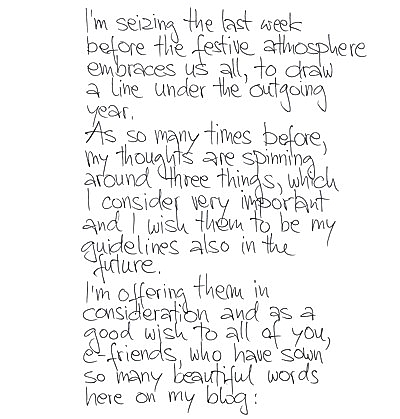 I'm seizing the last week
before the festive athmosphere
embraces us all, to draw
a line under the outgoing
year.
As so many times before,
my thoughts are spinning
around three things, which
I consider very important
and I wish them to be my
guidelines also in the
future.
I'm offering them in
consideration and as a
good wish to all of you,
e-friends, who have sown
so many beautiful words
here on my blog: